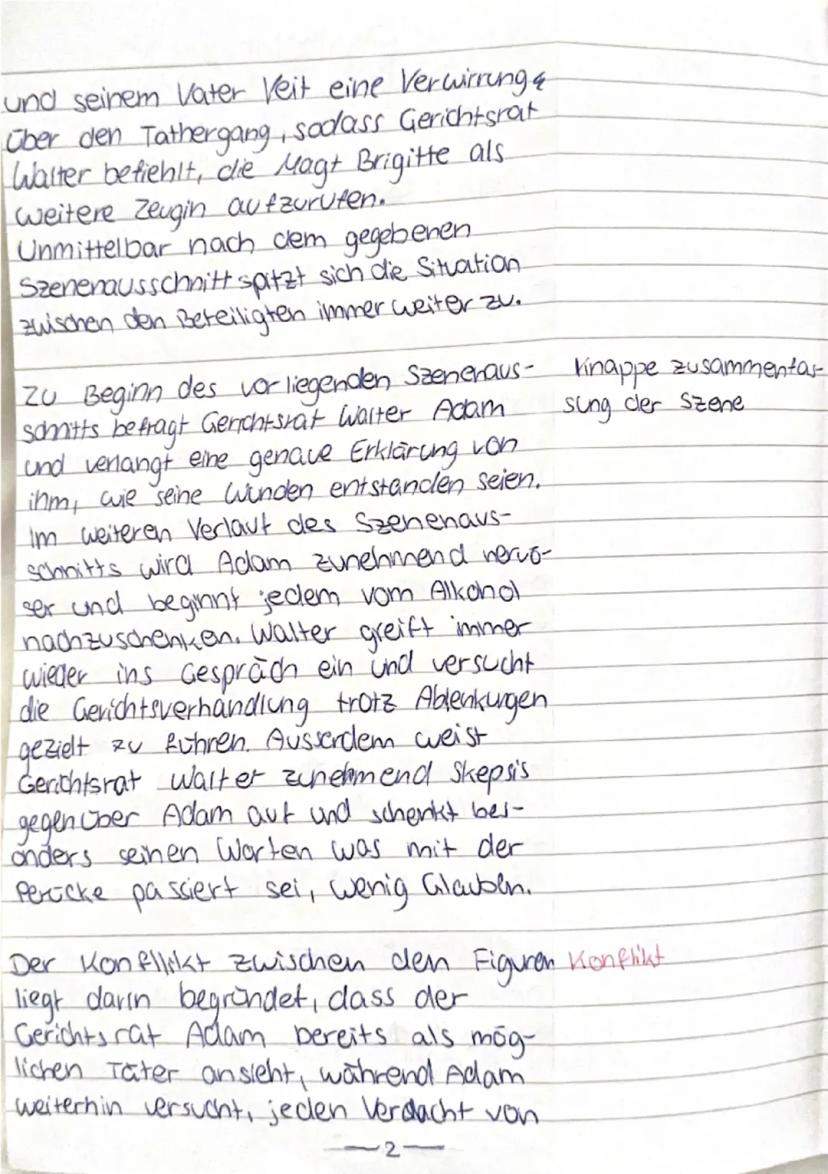 und seinem Vater Veit eine Verwirrung
über den Tathergang, sodass Gerichtsrat
Walter befiehlt, die Magt Brigitte als
weitere Zeugin aufzurufen.
Unmittelbar nach dem gegebenen
Szenenausschnitt spitzt sich die Situation
zwischen den Beteiligten immer weiter zu.
Zu Beginn des vorliegenden Szeneraus-
schnitts befragt Gerichtsrat Walter Adam
und verlangt eine genaue Erklärung von
ihm, wie seine Wunden entstanden seien.
Im weiteren Verlauf des Szenenaus-
schnitts wird Adam zunehmend nervö-
ser und beginnt jedem vom Alkohol
nachzuschenken. Walter greift immer
wieder ins Gespräch ein und versucht
die Gerichtsverhandlung trotz Ablenkungen
gezielt zu führen. Ausserdem weist
Gerichtsrat Walter zunehmend Skepsis
gegenüber Adam auf und schenkt bes-
onders seinen Worten was mit der
Perücke passiert sei, wenig Glauben.
Der Konflikt zwischen den Figuren
liegt darin begründet, dass der
Gerichtsrat Adam bereits als mög-
lichen Täter ansieht, während Adam
weiterhin versucht, jeden Verdacht von
Knappe Zusammenfas-
sung der Szene
Konflikt
2